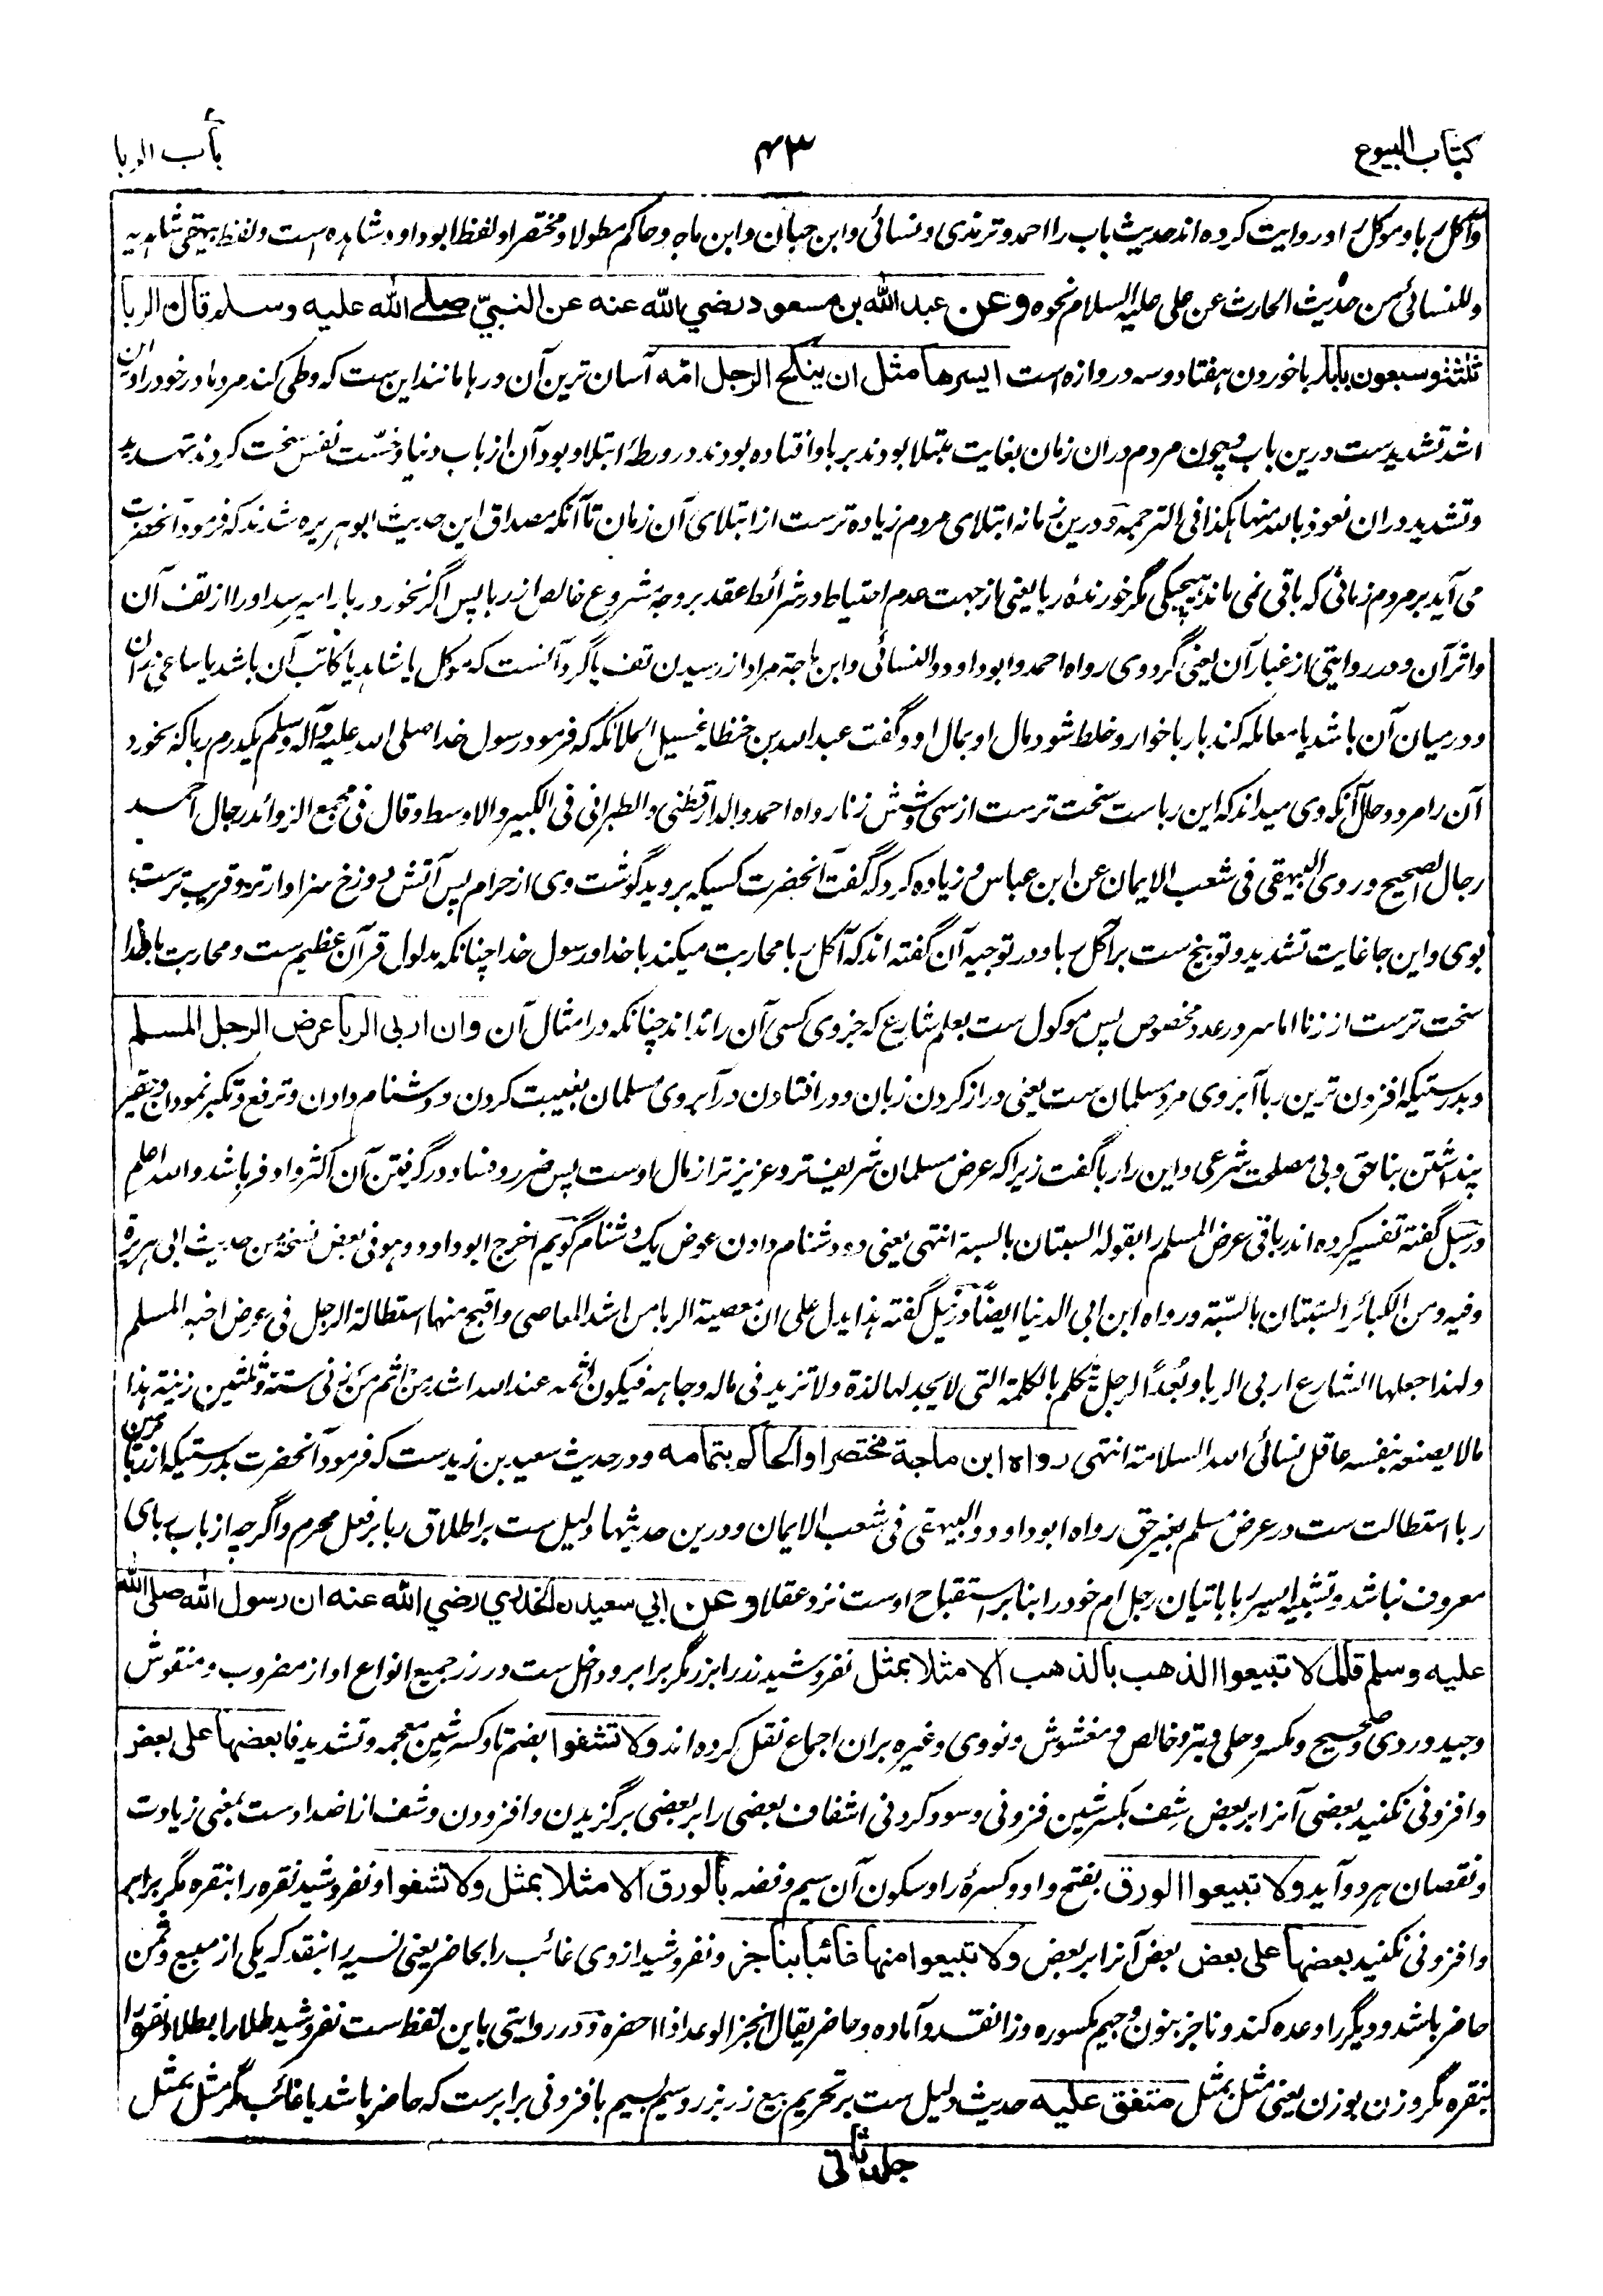 كتاب البيوع
۴۳
باب الربا
وآكل ربا و موكل ربا و روایت کرده اند حدیث باب را احمد و ترمذی و نسائی و ابن حبان و ابن ماجه و حاکم مطولا و مختصرا و لفظ ابوداود شاهده است و لفظ بیهقی شاهدیه
وللنسائی من حدیث الحارث عن علی علیه السلام نحوه وعن عبد الله بن مسعود رضي الله عنه عن النبيّ صلے الله عليه وسلم قال الربا
ثلثة وسبعون بابا ربا خوردن هفتاد و سه دروازه است ايسرها مثل ان ينكح الرجل امّه آسان ترین آن درها مانند این ست که وطی کند مرد مادر خود را و این
اشد تشدیدست درین باب و چون مردم دران زمان بغایت مبتلا بودند بربا و افتاده بودند در ورطهٔ ابتلا و بود آن از باب دنیا و خسّت نفس سخت کردند تهدید
و تشدید دران نعوذ بالله منها هکذا فی الترجمه و درین زمانه ابتلای مردم زیاده ترست از ابتلای آن زمان تا آنکه مصداق این حدیث ابوهریره شدند که فرمود آنحضرت
می آید بر مردم زمانی که باقی نمی ماند هیچیکی مگر خورندهٔ ربا یعنی از جهت عدم احتیاط در شرائط عقد بر وجه مشروع خالص از ربا پس اگر نخورد ربا را میرسد او را از تف آن
و اثر آن و در روایتی از غبار آن یعنی گرد وی رواه احمد وابوداود والنسائی وابن ماجة مراد از رسیدن تف یا گرد آنست که موکل یا شاهد یا کاتب آن باشد یا ساعی دران
و درمیان آن باشد یا معامله کند با ربا خوار و خلط شود مال او بمال او و گفت عبدالله بن حنظله غسیل الملائکه که فرمود رسول خدا صلی الله علیه وآله وسلم یکدرم ربا که بخورد
آن را مرد و حال آنکه وی میداند که این رباست سخت ترست از سی و شش زنا رواه احمد والدارقطنی والطبرانی فی الکبیر والاوسط وقال فی مجمع الزوائد رجال احمد
رجال الصحیح وروی البیهقی فی شعب الایمان عن ابن عباس و زیاده کرد که گفت آنحضرت کسیکه بروید گوشت وی از حرام پس آتش دوزخ سزاوارتر و قریب ترست
بوی و این جا غایت تشدید و توبیخ ست بر آکل ربا و در توجیه آن گفته اند که آکل ربا محاربت میکند با خدا و رسول خدا چنانکه مدلول قرآن عظیم ست و محاربت با خدا
سخت ترست از زنا اما سر در عدد مخصوص پس موکول ست بعلم شارع که جز وی کسی آن را نداند چنانکه در امثال آن وان اربى الربا عرض الرجل المسلم
و بدرستیکه افزون ترین ربا آبروی مرد مسلمان ست یعنی دراز کردن زبان و در افتادن در آبروی مسلمان بغیبت کردن و دشنام دادن و ترفع و تکبر نمودن و حقیر
پنداشتن بناحق و بی مصلحت شرعی و این را ربا گفت زیرا که عرض مسلمان شریف تر و عزیز تر از مال اوست پس ضرر و فساد در گرفتن آن اکثر و اوفر باشد والله اعلم
در سبل گفته تفسیر کرده اند ربا فی عرض المسلم را بقوله السبتان بالسبة انتهی یعنی دو دشنام دادن عوض یک دشنام گویم اخرج ابوداود وهو فی بعض نسخه من حدیث ابی هریرة
وفیه ومن الکبائر السّبّتان بالسّبّة ورواه ابن ابی الدنیا ایضًا و در نیل گفته هذا یدل علی ان معصیة الربا من اشد المعاصی واقبح منها استطالة الرجل فی عرض اخیه المسلم
ولهذا جعلها الشارع اربی الربا وبُعدًا لرجل یتکلم بالکلمة التی لایجد لها لذة ولاتزید فی ماله وجاهه فیکون اثمه عند الله اشد من اثم من زنی ستة وثلثین زنیة هذا
مالا یصنعه بنفسه عاقل نسائل الله السلامة انتهی رواه ابن ماجة مختصرا والحاكم بتمامه و در حدیث سعید بن زیدست که فرمود آنحضرت بدرستیکه از اربی ترین
ربا استطالت ست در عرض مسلم بغیر حق رواه ابوداود والبیهقی فی شعب الایمان و درین حدیثها دلیل ست بر اطلاق ربا بر فعل محرم و اگرچه از باب ربای
معروف نباشد و تشبیه ایسر ربا باتیان رجل ام خود را بنا بر استقباح اوست نزد عقلا وعن ابي سعيد الخدري رضي الله عنه ان رسول الله صلى الله
عليه وسلم قال لا تبيعوا الذهب بالذهب الا مثلا بمثل نفروشید زر را بزر مگر برابر و داخل ست در زر جمیع انواع او از مضروب و منقوش
و جید و ردی و صحیح و مکسر و حلی و تبر و خالص و مغشوش و نووی و غیره بران اجماع نقل کرده اند ولا تشفوا بضم تا و کسر شین معجمه و تشدید فا بعضها على بعض
و افزونی نکنید بعضی آنرا بر بعض شِف بکسر شین فزونی و سود کردنی اشفاف بعضی را بر بعضی برگزیدن و افزودن و شف از اضدادست بمعنی زیادت
و نقصان هر دو آید ولا تبيعوا الورق بفتح واو و کسرهٔ را و سکون آن سیم و فضه بالورق الا مثلا بمثل ولا تشفوا و نفروشید نقره را بنقره مگر برابر
و افزونی نکنید بعضها على بعض بعض آنرا بر بعض ولا تبيعوا منها غائبا بناجز و نفروشید از وی غائب را بحاضر یعنی نسیه را بنقد که یکی از مبیع و ثمن
حاضر باشد و دیگر را وعده کند و ناجز بنون و جیم مکسوره و زا نقد و آماده و حاضر یقال انجز الوعد اذا احضره و در روایتی باین لفظ ست نفروشید طلا را بطلا و نقره را
بنقره مگر وزن بوزن یعنی مثل بمثل متفق عليه حدیث دلیل ست بر تحریم بیع زر بزر و سیم بسیم با فزونی برابرست که حاضر باشد یا غائب مگر مثل بمثل
جلد ثانی